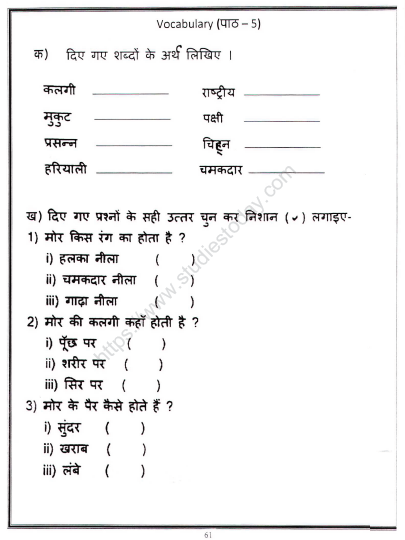 Vocabulary (पाठ – 5)
क) दिए गए शब्दों के अर्थ लिखिए ।
कलगी ____________ राष्ट्रीय ____________
मुकुट ____________ पक्षी ____________
प्रसन्न ____________ चिह्न ____________
हरियाली ____________ चमकदार ____________
ख) दिए गए प्रश्नों के सही उत्तर चुन कर निशान (✓) लगाइए-
1) मोर किस रंग का होता है ?
i) हलका नीला ( )
ii) चमकदार नीला ( )
iii) गाढ़ा नीला ( )
2) मोर की कलगी कहाँ होती है ?
i) पूँछ पर ( )
ii) शरीर पर ( )
iii) सिर पर ( )
3) मोर के पैर कैसे होते हैं ?
i) सुंदर ( )
ii) खराब ( )
iii) लंबे ( )
https://www.studiestoday.com
61